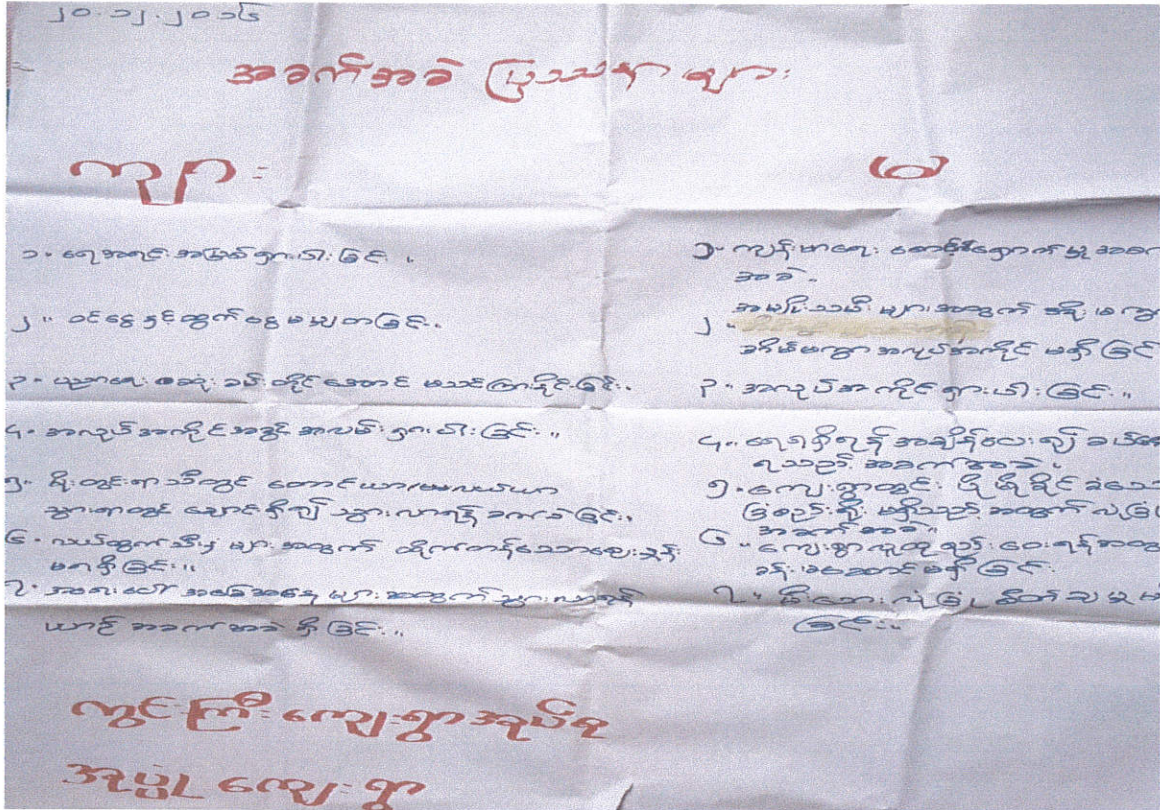 ၂၀.၁၂.၂၀၁၆
အခက်အခဲ ပြဿနာများ
ကျား
မ
၁။ ရေအရင်းအမြစ်ရှားပါးခြင်း။
၂။ ဝင်ငွေနှင့်ထွက်ငွေမမျှတခြင်း။
၃။ ပညာရေးအဆုံးခမ်းတိုင်အောင် မသင်ကြားနိုင်ခြင်း။
၄။ အလုပ်အကိုင်အခွင့်အလမ်းရှားပါးခြင်း။
၅။ မိုးတွင်းရာသီတွင် တောင်ယာ/လယ်ယာ
သွားရာတွင် ချောင်းရှိ၍ သွားလာရန် ခက်ခဲခြင်း။
၆။ လယ်ထွက်သီးနှံများအတွက် ထိုက်တန်သောဈေးနှုန်း
မရရှိခြင်း။
၇။ အရေးပေါ်အခြေအနေများအတွက်သွားလာရန်
ယာဉ် အခက်အခဲရှိခြင်း။
၁။ ကျန်းမာရေး စောင့်ရှောက်မှု အခက်
အခဲ။
၂။ အမျိုးသမီးများအတွက် အိုးမကွာ
အိမ်မကွာအလုပ်အကိုင် မရှိခြင်း
၃။ အလုပ်အကိုင်ရှားပါးခြင်း။
၄။ ရေရရှိရန် အချိန်ပေး၍ ခယ်
ရသည့် အခက်အခဲ။
၅။ ကျေးရွာတွင်း ပိုမိုခိုင်ခံ့သော
ခြံစည်းရိုး မရှိသည့်အတွက် လုံခြုံ
အခက်အခဲ။
၆။ ကျေးရွာလူထုစည်းဝေးရန်အတွ
ခန်းမဆောင်မရှိခြင်း။
၇။ မီးဘေးလုံခြုံစိတ်ချမှုမ
ခြင်း။
ကွင်းကြီးကျေးရွာအုပ်စု
ကျေးရွာ